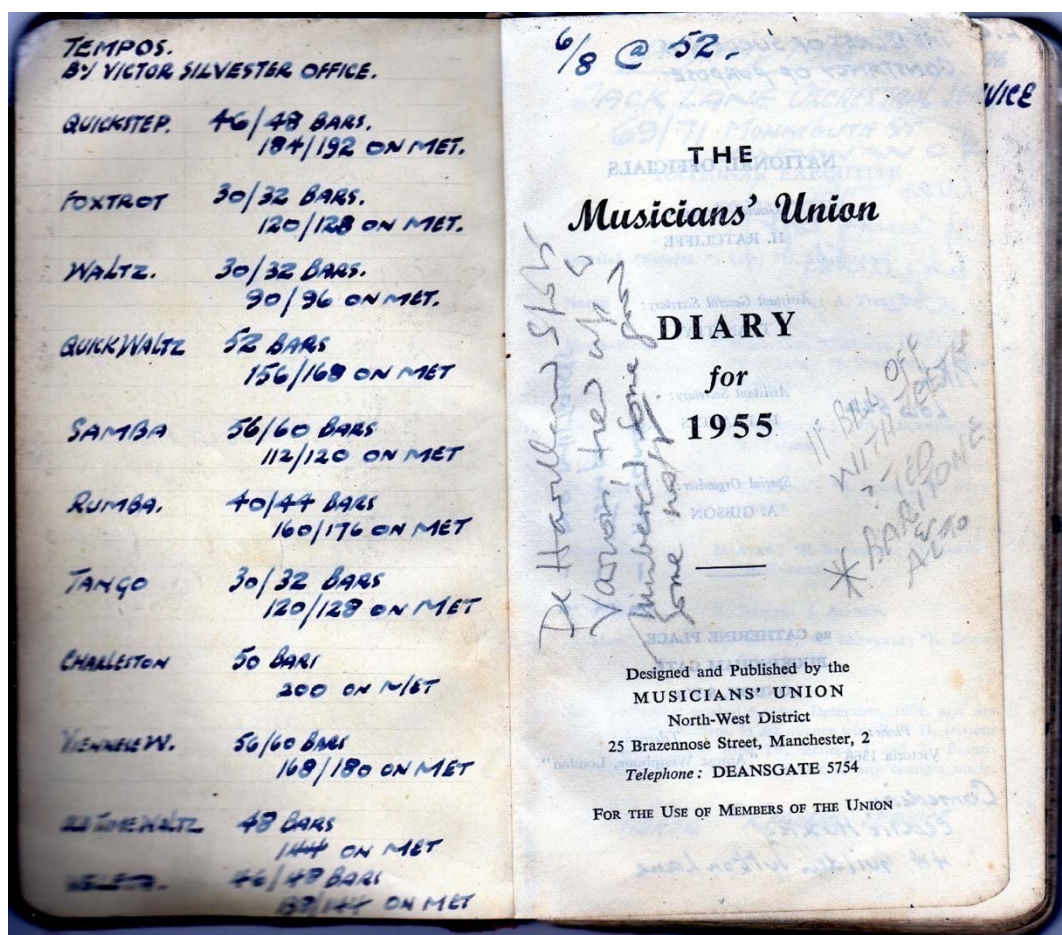 TEMPOS.
BY VICTOR SILVESTER OFFICE.
QUICKSTEP. 46/48 BARS.
184/192 ON MET.
FOXTROT 30/32 BARS.
120/128 ON MET.
WALTZ. 30/32 BARS.
90/96 ON MET.
QUICK WALTZ 52 BARS
156/168 ON MET
SAMBA 56/60 BARS
112/120 ON MET
RUMBA. 40/44 BARS
160/176 ON MET
TANGO 30/32 BARS
120/128 ON MET
CHARLESTON 50 BARS
200 ON MET
VIENNESE W. 56/60 BARS
168/180 ON MET
OLD TIME WALTZ 48 BARS
144 ON MET
VELETA. 46/48 BARS
138/144 ON MET
6/8 @ 52.
VICE
THE
Musicians' Union
DIARY
for
1955
numbered some
some not
IF BAR OFF
WITH TEETH
? TED
* BARITONE
& ALTO
Designed and Published by the
MUSICIANS' UNION
North-West District
25 Brazennose Street, Manchester, 2
Telephone: DEANSGATE 5754
FOR THE USE OF MEMBERS OF THE UNION